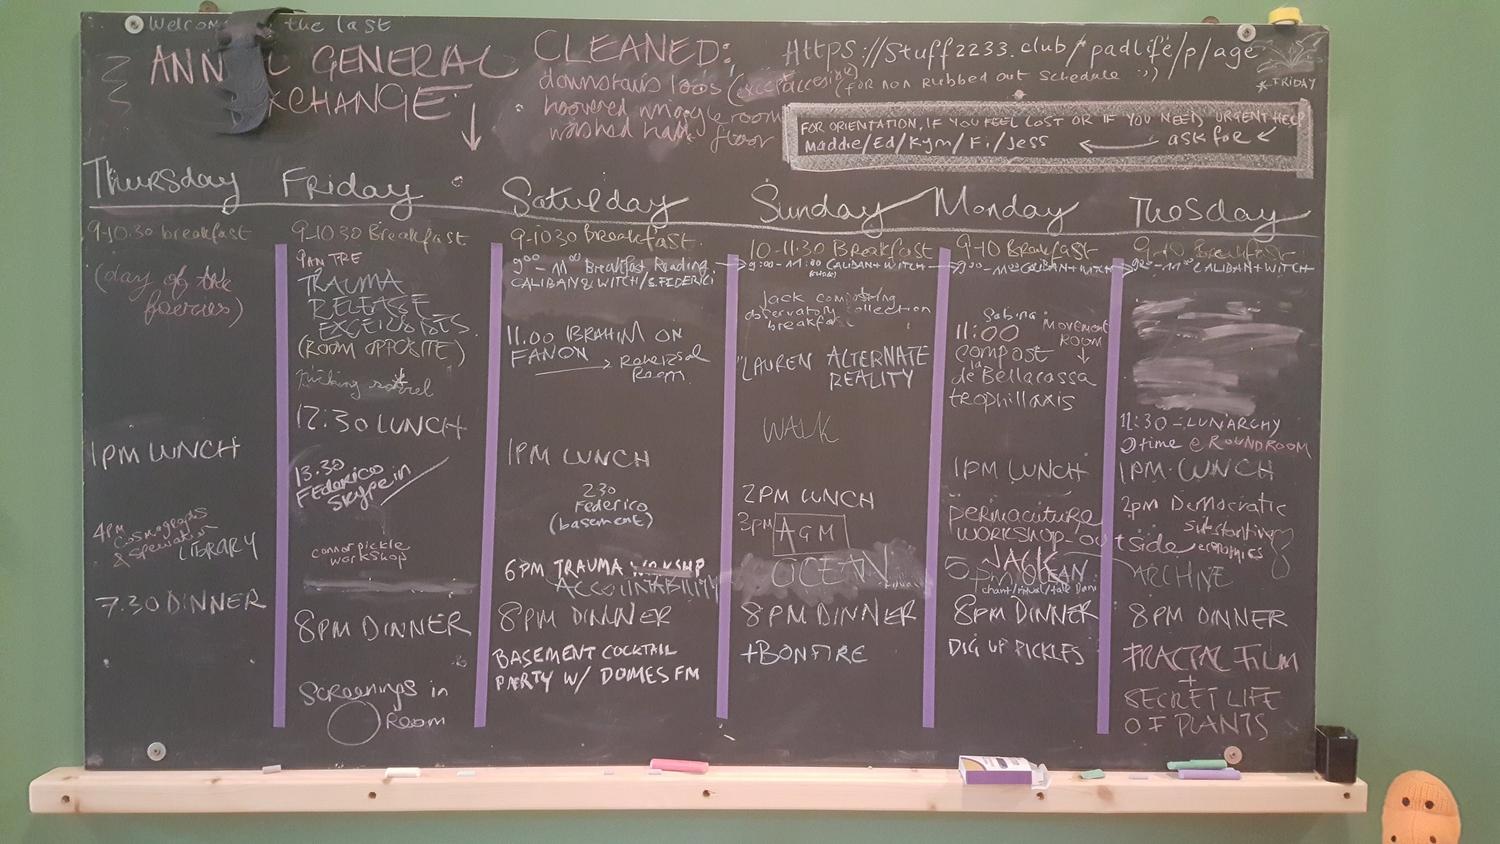 Welcome the last
ANN L GENERAL
XCHANGE
CLEANED:
downstairs loos (except accessible)
hoovered wiggle room
washed hall floor
https://stuff2233.club/padlife/p/age
(for non rubbed out schedule :))
*FRIDAY
FOR ORIENTATION, IF YOU FEEL LOST OR IF YOU NEED URGENT HELP
ask for
Maddie/Ed/Kym/Fi/Jess
Thursday
9-10.30 breakfast
(day of the
faeries)
1PM LUNCH
4PM
Cosmographs
& Speculation
LIBRARY
7.30 DINNER
Friday
9-1030 Breakfast
9AM TRE
TRAUMA
RELEASE
EXCERCISES
(ROOM OPPOSITE)
12:30 LUNCH
13.30
Federico
Skype in
connor pickle
workshop
8PM DINNER
Screenings in
Room
Saturday
9-1030 Breakfast
9:00 - 11:00 Breakfast Reading
CALIBAN & WITCH/S.FEDERICI
11.00 IBRAHIM ON
FANON
Rehearsal
Room
1PM LUNCH
230
Federico
(basement)
6PM TRAUMA WORKSHP
ACCOUNTABILITY
8PM DINNER
BASEMENT COCKTAIL
PARTY W/ DOMES FM
Sunday
10-11:30 Breakfast
9:00-11:00 CALIBAN + WITCH
Jack composting
observatory collection
breakfast
"LAUREN ALTERNATE
REALITY
WALK
2PM LUNCH
3PM AGM
OCEAN
8PM DINNER
+BONFIRE
Monday
9-10 Breakfast
9:00-11:00 CALIBAN + WITCH
Sabina
11:00
MOVEMENT
ROOM
compost
la
de Bellacassa
teophillaxis
1PM LUNCH
permaculture
WORKSHOP
JACK
5pm OCEAN
chant/ritual/talk Dani
8PM DINNER
DIG UP PICKLES
Tuesday
9-10 Breakfast
9:00-11:00 CALIBAN + WITCH
11:30 - LUNARCHY
time @ ROUNDROOM
1PM LUNCH
2pm Democratic
substantive
economics
outside
ARCHIVE
8PM DINNER
FRACTAL FILM
+
SECRET LIFE
OF PLANTS